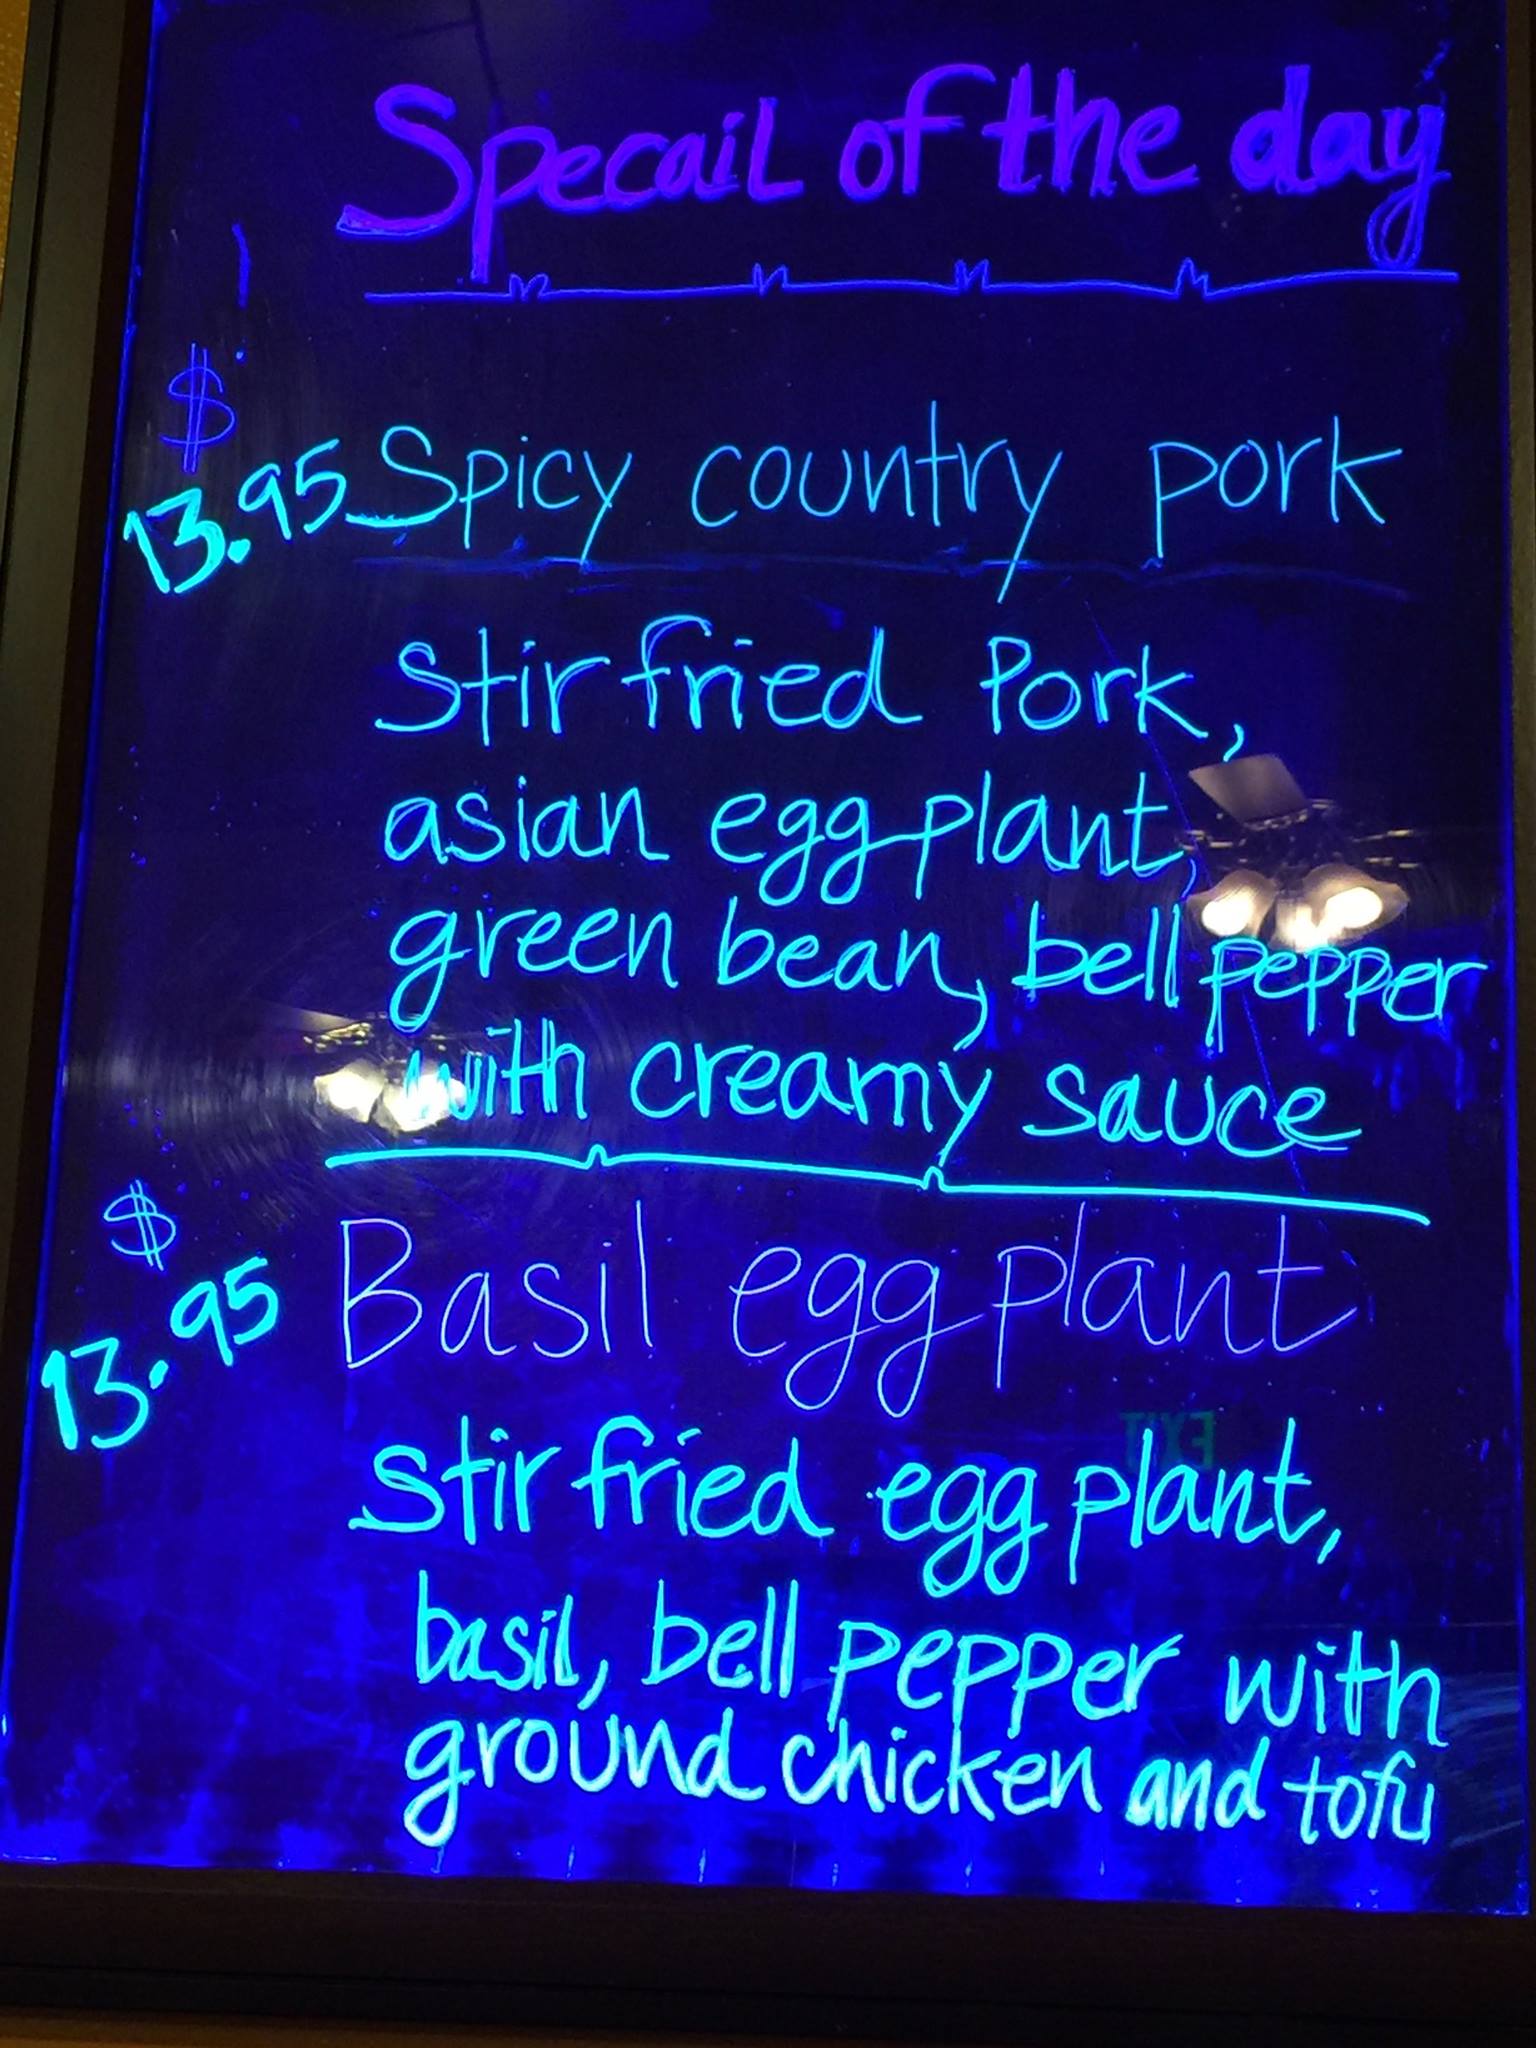 Specail of the day
$
13.95 Spicy country pork
Stir fried Pork,
asian egg plant,
green bean, bell pepper
with creamy sauce
$
13.95 Basil egg plant
Stir fried egg plant,
basil, bell pepper with
ground chicken and tofu
EXIT